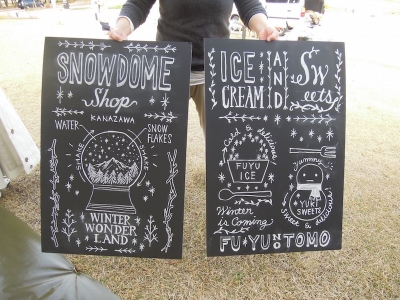 SNOWDOME
Shop
KANAZAWA
WATER
SNOW
FLAKES
SHAKE
SHAKE
WINTER
WONDER
LAND
ICE
CREAM
AND
Sweets
Cold & delicious
FUYU
ICE
Winter
is Coming
Yummy
YUKI
SWEETS
Sweet & delicious!
FUYU NO TOMO